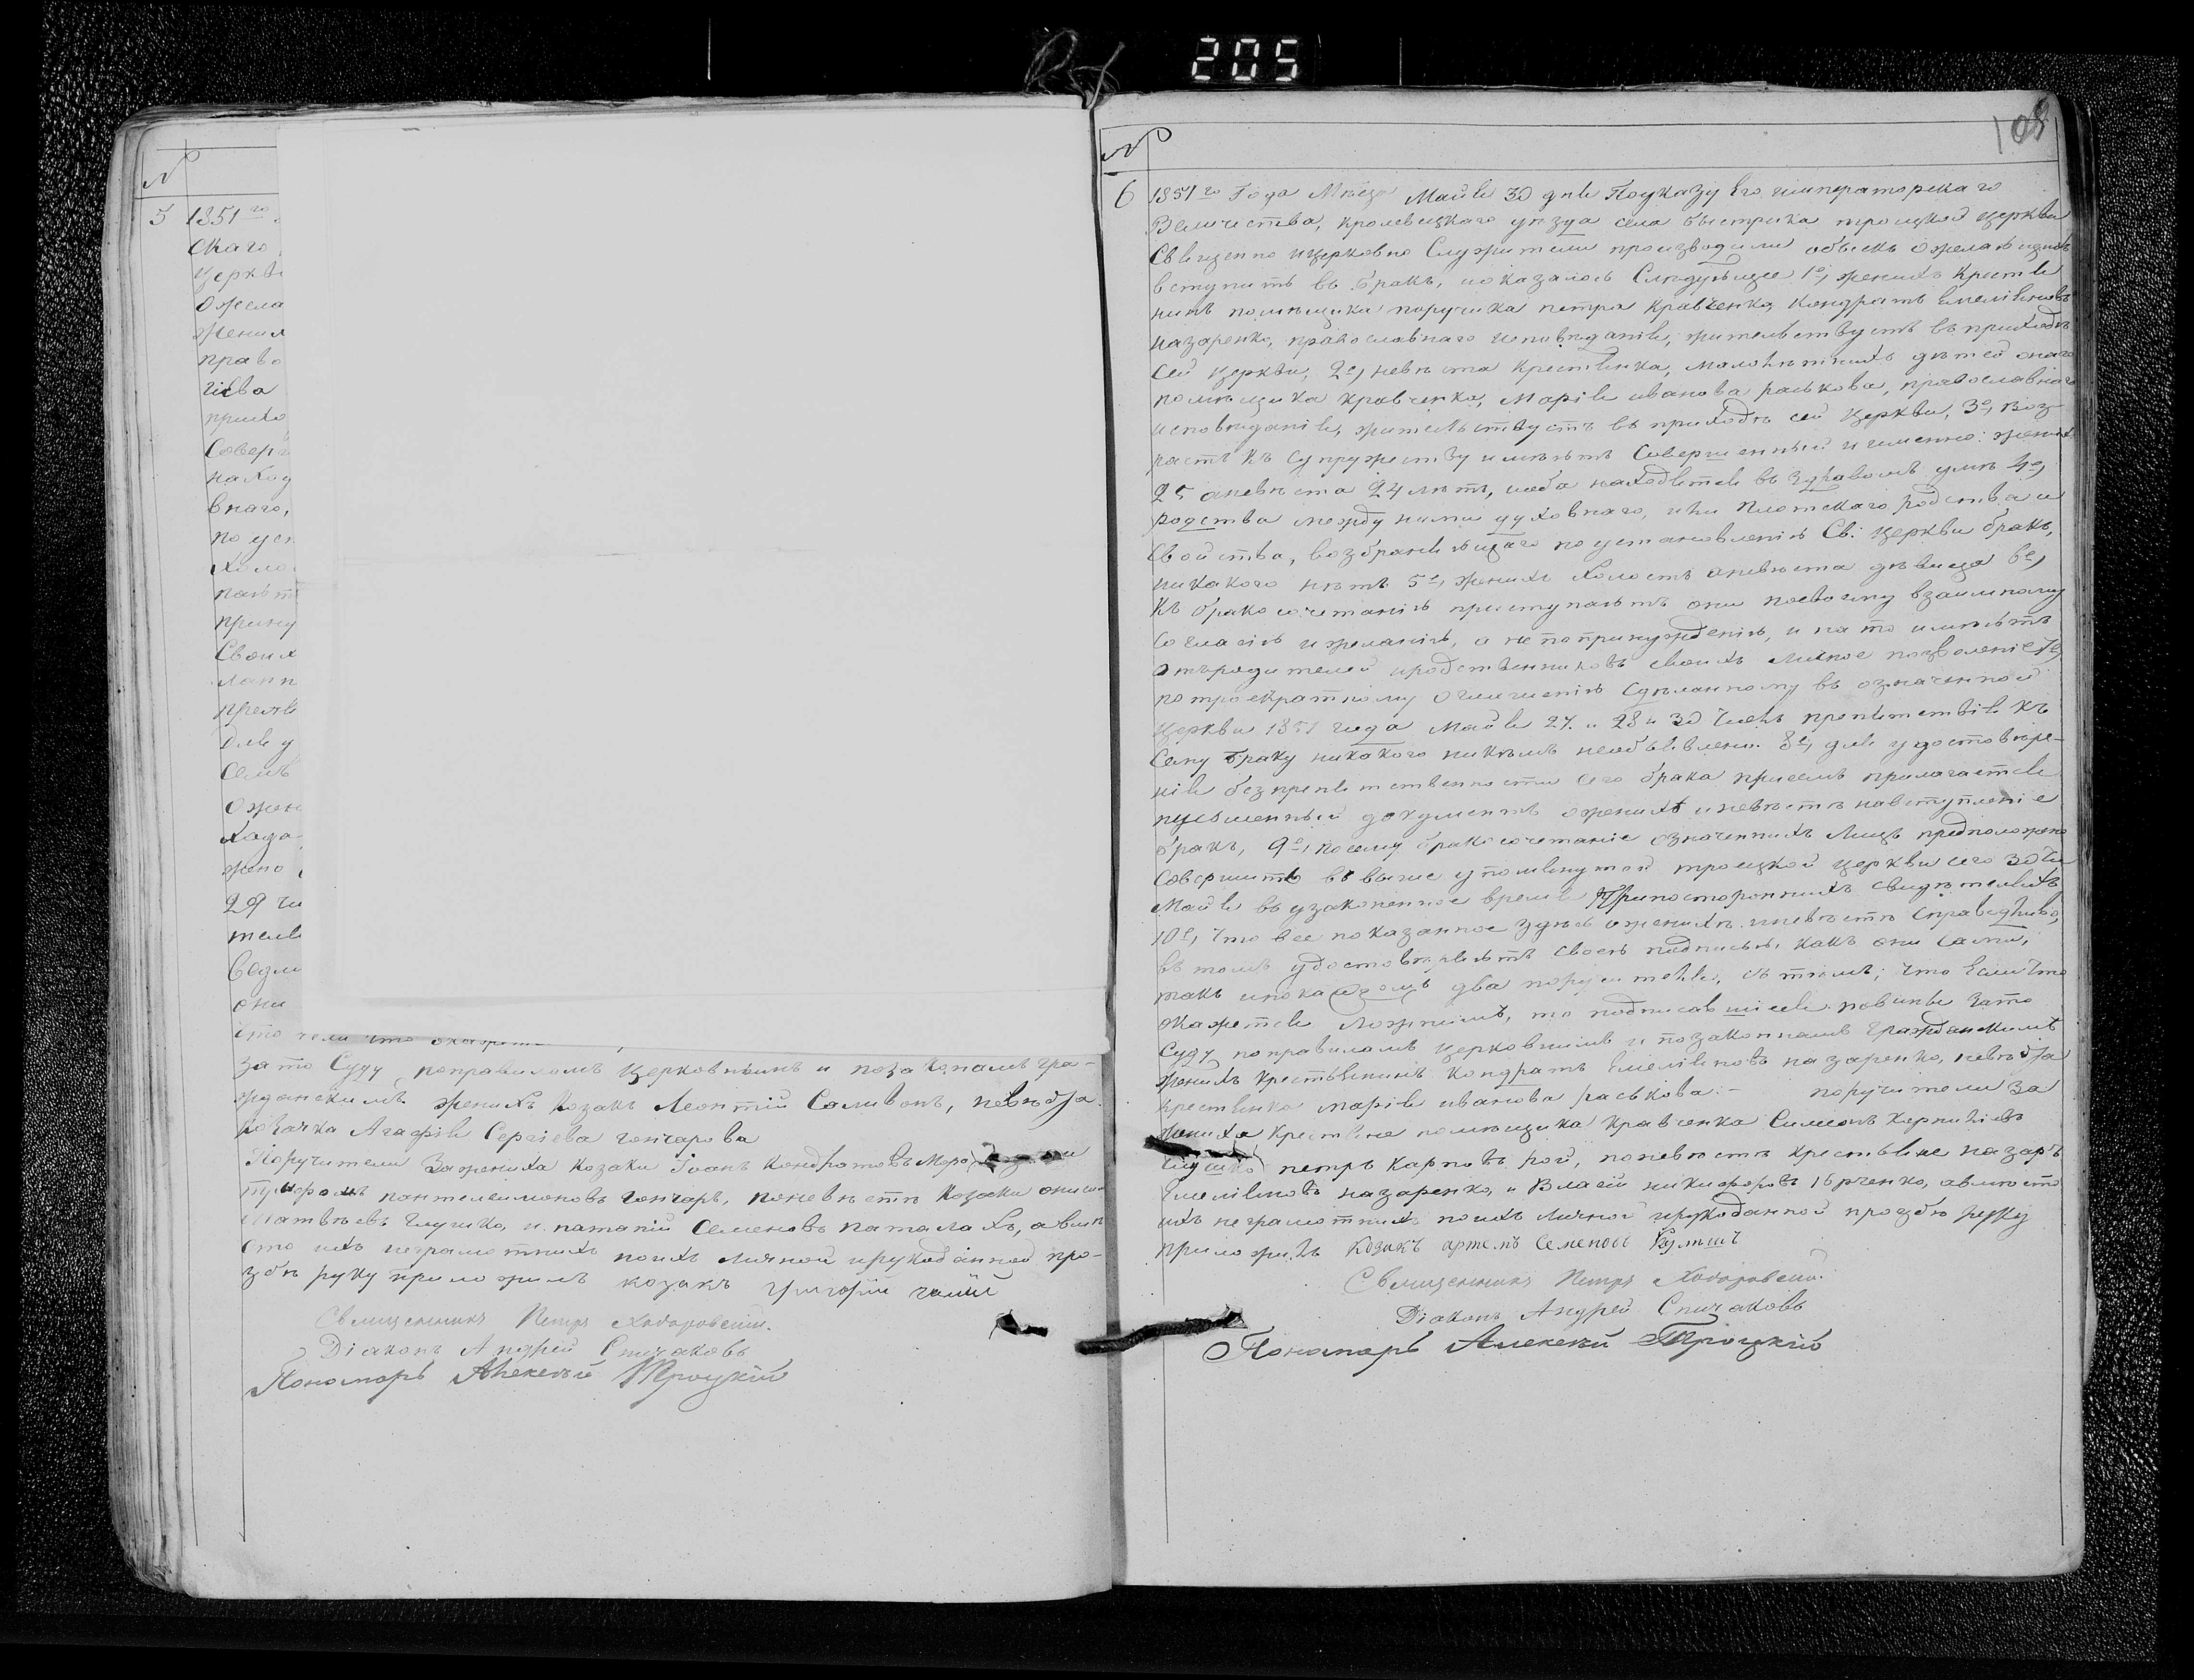 205
109
№
5 1851го
скаго
Церкви
О жела
жених
право
гіева
прихо
Совер
наход
внаго,
по уст
холо
паютъ
прину
Своих
ланн
препя
Для у
Семъ
О жен
хода
жено
29 чи
тел
ведли
они
за то Суду, поправиламъ церковнымъ и позаконамъ гра-
жданскимъ женихъ козакъ Леонтій Саливонъ, невѣста
козачка Агафія Сергіева гончарова
Поручители Зажениха козаки Іоанъ Кондратовъ
пантелеимоновъ гончаръ, поневѣстѣ Козаки
Матвѣевъ глушко, и потапій Семеновъ паталахъ, авмѣ
сто ихъ неграмотныхъ поихъ личной ирукоданной про-
збѣ руку приложилъ козакъ григорій
Священникъ Петръ Ходоровскій.
Діаконъ Андрей Спичаковъ
Пономарь Алексѣй Троцкій
№
6 1851го Года Мѣсяца Маія 30 дня Поуказу Его императорскаго
Величества, кролевецкаго уѣзда села быстрика троицкой церкви
Священно ицерковно Служители производили обыскъ ожелающихъ
вступить въ бракъ, иоказалось Слѣдующее 1е, женихъ крестья
нинъ помѣщика поручика петра Кравченка, Кондратъ Емеліяновъ
назаренко, православнаго исповѣданія, жительствуетъ въ приходѣ
Сей церкви, 2е, невѣста крестьянка, малолѣтнихъ дѣтей онаго
помѣщика кравченка, Марія иванова раськова, православнаго
исповѣданія, жительствуетъ въ приходѣ сей церкви, 3е, воз
растъ къ супружеству имѣютъ Совершенный и именно: женихъ
25 аневѣста 24 лѣтъ, иоба находятся въ здравомъ умѣ 4е,
родства между ними духовнаго, или плотскаго родства и
свойства, возбраняющаго по установленію Св: церкви бракъ,
никакого нѣтъ 5е, женихъ холостъ аневѣста дѣвица 6е,
Къ бракосочетанію приступаютъ они посвоему взаимному
согласію и желанію, а не попринужденію, и на то имѣютъ
отъродителей иродственниковъ своихъ личное позволеніе 7е,
по троекратному оглашенію сдѣланному въ означенной
церкви 1851 года Маія 27. и 28 и 30 чиселъ препятствія къ
Сему браку никакого никѣмъ необъявлено. 8е, для удостовѣре-
нія безпрепятственности сего брака присемъ прилагается
письменный документъ оженихѣ иневѣстѣ навступленіе
бракъ, 9е, посему бракосочетаніе означенныхъ Лицъ предположено
Совершить въ выше упомянутой троицкой церкви сего 30 чи
Маія въ узаконенное время припостороннихъ свидѣтеляхъ
10е, что все показанное здѣсь оженихѣ иневѣстѣ справедливо,
въ томъ удостовѣряютъ своею подписью, какъ они сами,
такъ ипокаждомъ два поручителя, съ тѣмъ; что Если что
окажется ложнымъ, то подписавшіеся повинны Зато
Суду поправиламъ церковнымъ и позаконнамъ гражданскимъ
женихъ крестьянинъ Кондратъ Емеліяновъ назаренко, невѣста
крестьянка марія иванова раськова. — поручители за
жениха крестьяне помѣщика кравченка Симеонъ
петръ карповъ рой, поневѣстѣ крестьяне назаръ
Емеліяновъ назаренко, и Власій никифоровъ юрченко, авмѣсто
ихъ неграмотныхъ поихъ личной ирукоданной прозбѣ руку
приложилъ Козакъ артемъ Семеновъ
Священникъ Петръ Ходоровскій.
Діаконъ Андрей Спичаковъ
Пономарь Алексѣй Троцкій